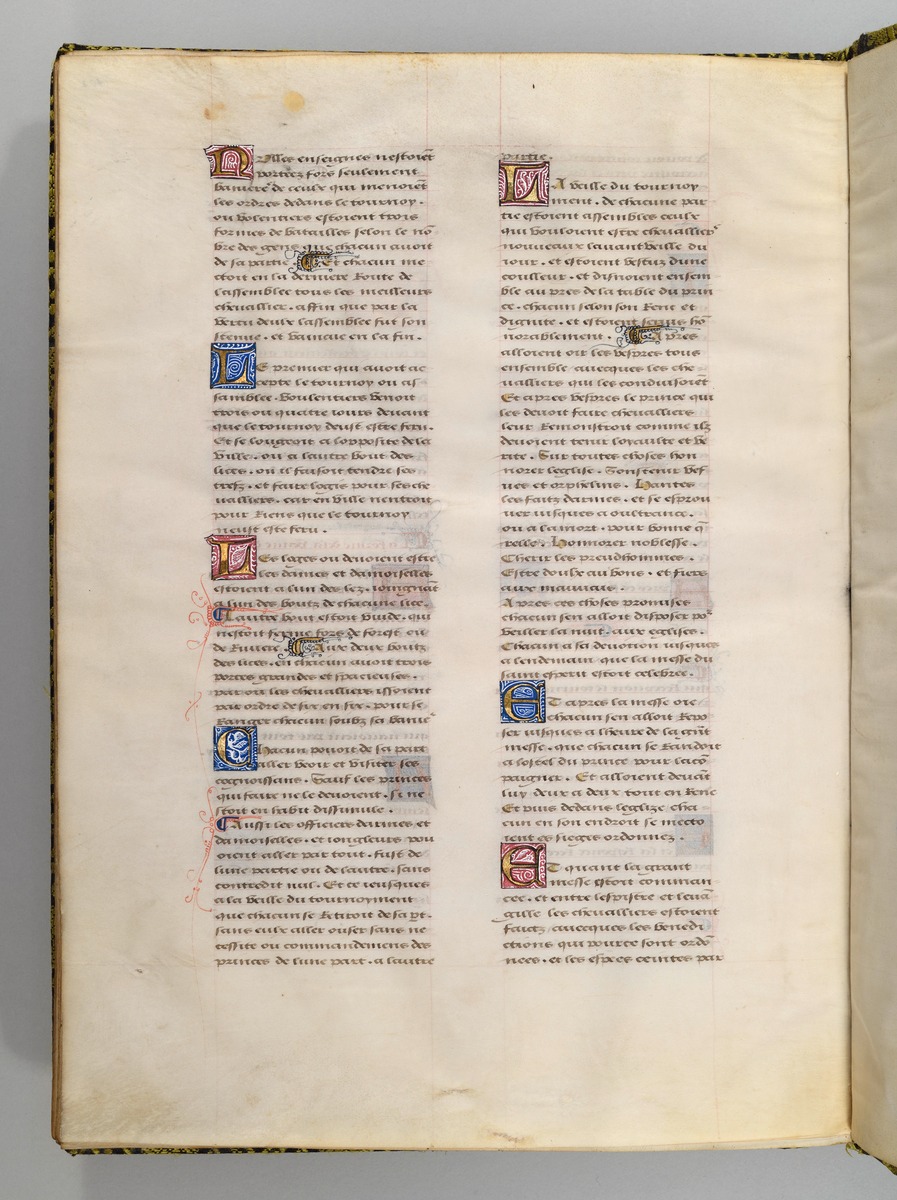 Nulles enseignes nestoiẽt
portéez fors seulement
baniere de ceulx qui menoiẽt
les ordres dedans le tournoy .
ou volentiers estoient trois
formes de batailles selon le nõ
bre des gens que chacun auoit
de sa partie . Et chacun me
ctoit en la derniere Route de
lassemblee tous les meilleurs
cheuallier . affin que par la
vertu deulx lassemblee fut son
stenue . et vaincue en la fin .
LE premier qui auoit ac
cepte le tournoy ou as
samblee . voulentiers venoit
trois ou quatre iours deuant
que le tournoy deust estre feru .
Et se lougeoit a lopposite de la
ville . ou a lautre bout des
lices . ou il faisoit tendre ses
trefz . et faire logis pour ses che
ualliers . car en ville nentroit
pour Riens que le tournoy
neust este feru .
LEs lages ou deuoient estre
les dames et damoiselles
estoient a lun des lez . ioingnãt
a lun des boutz de chacune lice .
Lautre bout estoit vuide . qui
nestoit ferme fors de forest ou
de Riuiere . Aux deux boutz
des lices . en chacun auoit trois
portes grandes et spacieuses .
par ou les cheualliers issoient
par ordre de six en six . pour se
Ranger chacun soubz sa banie
Chacun pouoit de sa part
aller veoir et visiter ses
cognoissans . Sauf les princes
qui faire ne le deuoient . si ne
stoit en habit dissimule .
Aussi les officiers darmes et
damoiselles . et iongleurs pou
oient aller par tout . fust de
lune partie ou de lautre . sans
contredit nul . Et ce iusques
a la veille du tournoyment
que chacun se Retiroit de sa pt .
sans eulx aller ouser sans ne
cessite ou commandemens des
princes de lune part . a lautre
partie .
LA veille du tournoy
ment . de chacune par
tie estoient assembles ceulx
qui vouloient estre cheuallier
nouueaux lauant veille du
iour . et estoient vestuz dune
coulleur . et disnoient ensem
ble au pres de la table du prin
ce . chacun selon son Renc et
dignite . et estoient seruis hõ
norablement . Apres
alloient oir les vespres tous
ensemble auecques les che
ualliers qui les conduisoiẽt
Et apres vespres le prince qui
les deuoit faire cheualliers
leur Remonstroit comme ilz
deuoient tenir loyaulte et ve
rite . Sur toutes choses hon
norer leglise . Soustenir vef
ues et orphelins . Hanter
les faitz darmes . et se esprou
uer iusques a oultrance .
ou a la mort . pour bonne q̃
relle . Honnorer noblesse .
Cherir les preudhommes .
Estre doulx au bons . et fiers
aux mauuais .
Apres ces choses promises
chacun sen alloit disposer po
veiller la nuit . aux eglises .
Chacun a sa deuotion iusques
a lendemain que la messe du
saint esperit estoit celebree .
ET apres la messe oie
chacun sen alloit Repo
ser iusques a lheure de la grãt
messe . que chacun se Randoit
a lostel du prince pour lacõ
paigner . Et alloient deuãt
luy deux a deux tout en Renc
Et puis dedans leglize cha
cun en son endroit se mecto
ient es sieges ordonnez .
ET quant la grant
messe estoit comman
cee . et entre lespistre et leuã
gille les cheualliers estoient
faictz auecques les benedi
ctions qui pource sont ordõ
nees . et les espees ceintes par